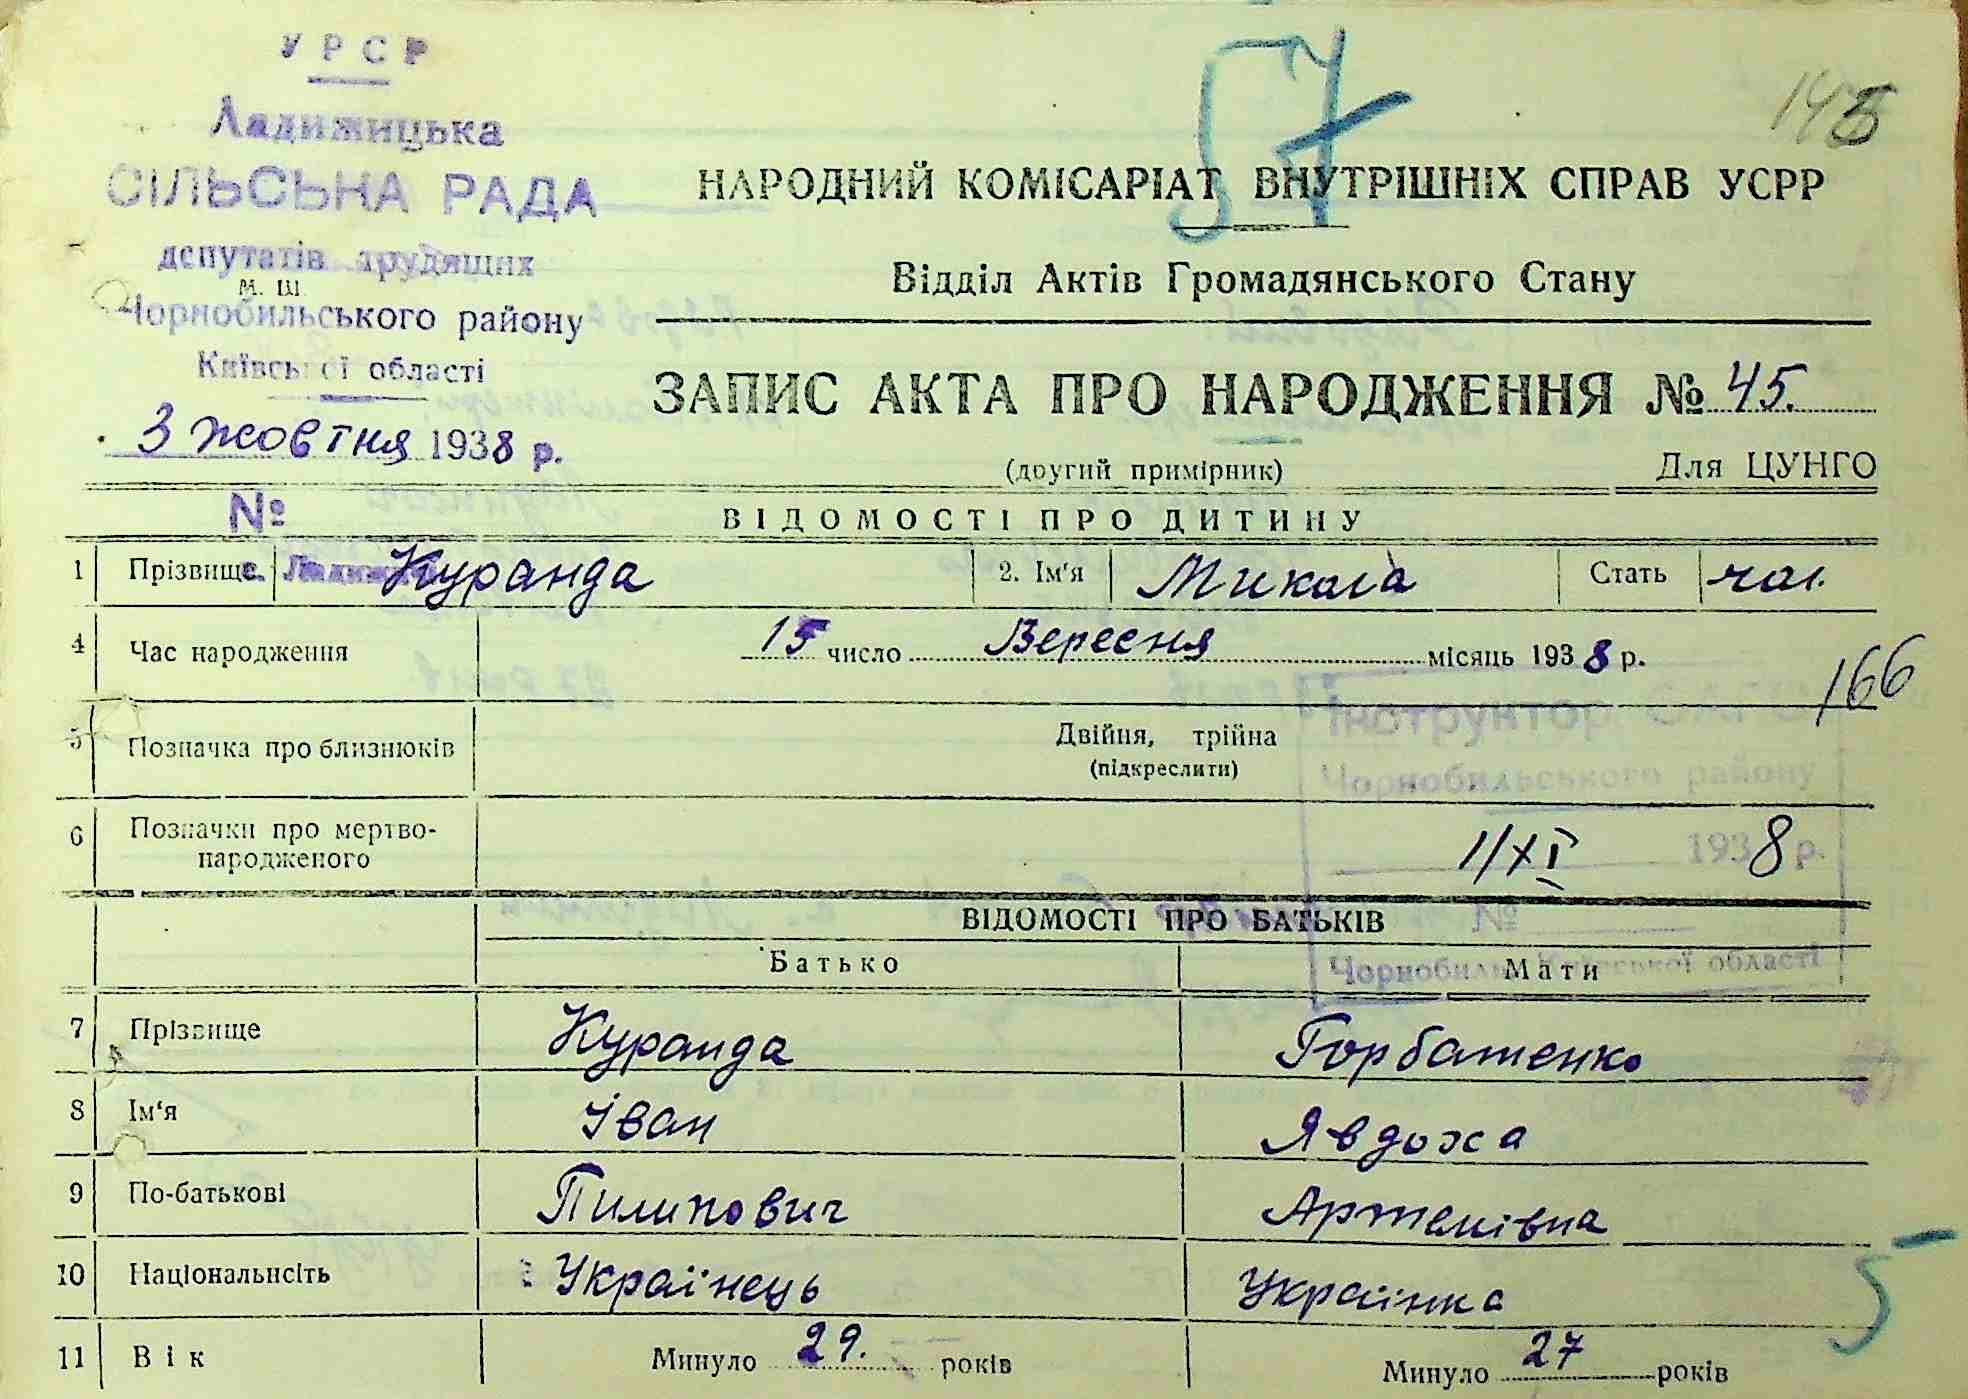 УРСР
Ладижицька
СІЛЬСЬКА РАДА
депутатів трудящих
М. Ш.
Чорнобильського району
Київської області
3 жовтня 1938 р.
№
57
145
НАРОДНИЙ КОМІСАРІАТ ВНУТРІШНІХ СПРАВ УСРР
Відділ Актів Громадянського Стану
ЗАПИС АКТА ПРО НАРОДЖЕННЯ № 45.
(другий примірник) Для ЦУНГО
ВІДОМОСТІ ПРО ДИТИНУ
1 Прізвище Куранда 2. Ім'я Микола Стать чол.
4 Час народження 15 число Вересня місяць 1938 р.
166
5 Позначка про близнюків Двійня, трійна
(підкреслити)
Інструктор
Чорнобильського району
6 Позначки про мертво-
народженого
1/XI 1938 р.
№
Чорнобиль Київської області
ВІДОМОСТІ ПРО БАТЬКІВ
Батько Мати
7 Прізвище Куранда Горбатенко
8 Ім'я Іван Явдоха
9 По-батькові Пилипович Артемівна
10 Національнсіть Українець Українка
5
11 Вік Минуло 29. років Минуло 27 років